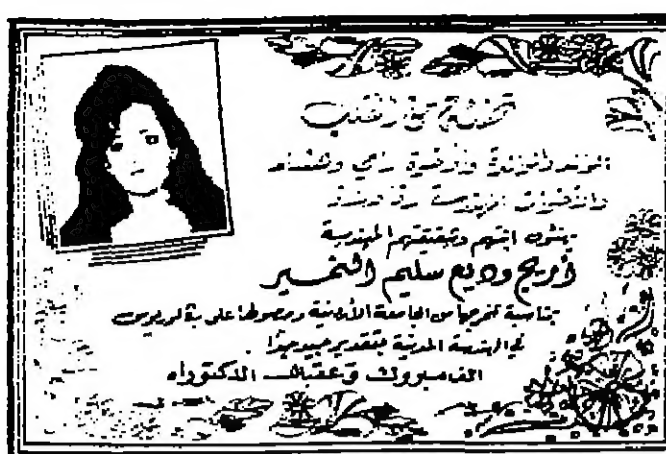 تهنئة من القلب
الوالد والوالدة والأخوة رامي و
والأخوات المهندسة
يهنئون ابنتهم وشقيقتهم المهندسة
أريج وديع سليم النمير
بمناسبة تخرجها من الجامعة الأردنية وحصولها على بكالوريوس
في الهندسة المدنية بتقدير جيد جداً
ألف مبروك وعقبال الدكتوراه